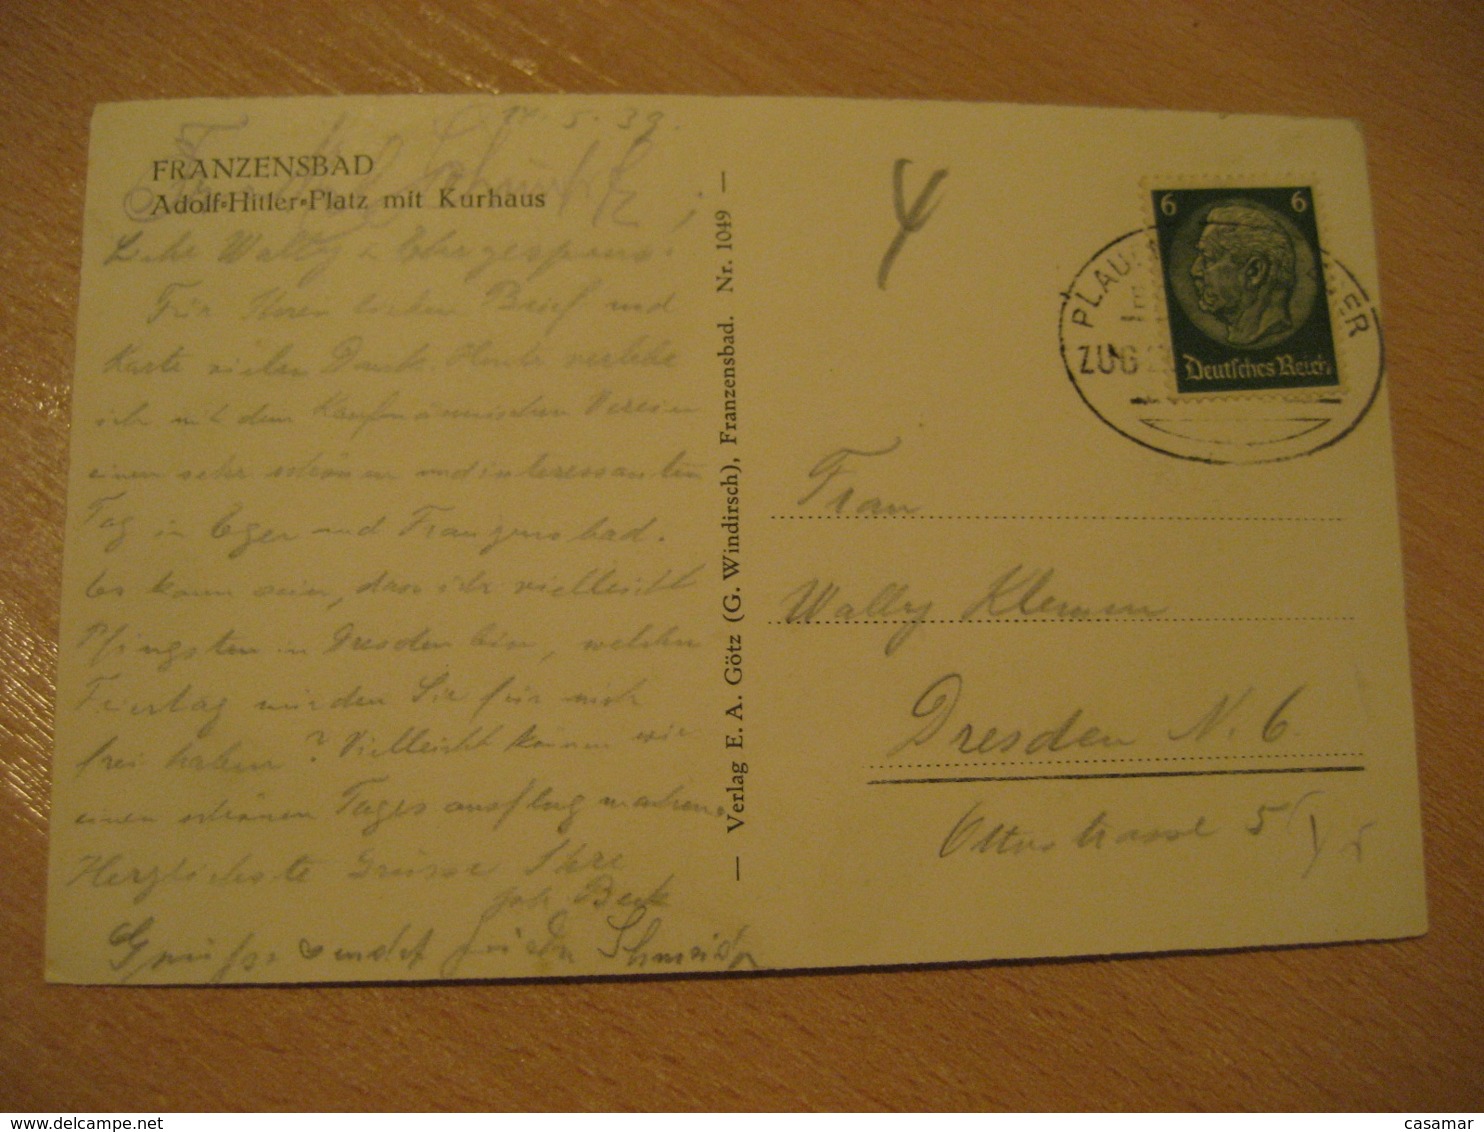 5. 39.
FRANZENSBAD
Adolf-Hitler-Platz mit Kurhaus
Liebe Wally
Für Ihren lieben Brief und
Karte vielen Dank Heute verlebe
ich mit dem Kaufmännischen Verein
einen sehr schönen und interessanten
Tag in Eger und Franzensbad.
Es kann sein, dass ich vielleicht
Pfingsten in Dresden bin, welchen
Feiertag würden Sie für mich
frei haben? Vielleicht können wir
einen schönen Tagesausflug machen.
Herzlichste Grüsse Ihre
Beck
sendet Schneider
— Verlag E. A. Götz (G. Windirsch), Franzensbad. Nr. 1049 —
4
6 6
Deutsches Reich
PLAU
ZUG
Frau
Wally Klemm
Dresden N. 6
Ottostrasse 5
casamar